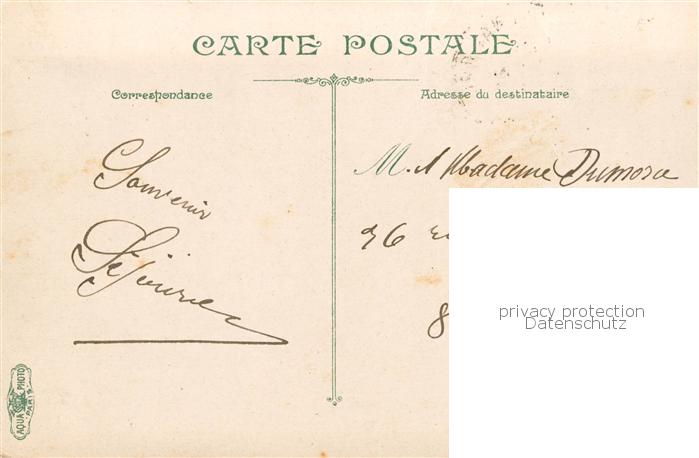 CARTE POSTALE
Correspondance
Adresse du destinataire
Souvenir
M. & Madame Dumora
36
8
privacy protection
Datenschutz
AQUA PHOTO
PARIS